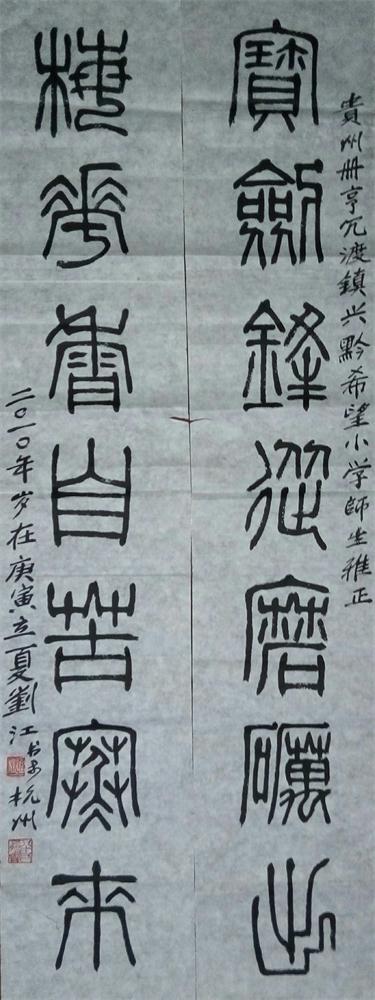 貴州册亨冗渡鎮兴黔希望小学師生雅正
寶劍鋒從磨礪出
梅華香自苦寒來
二〇一〇年岁在庚寅立夏劉江书于杭州